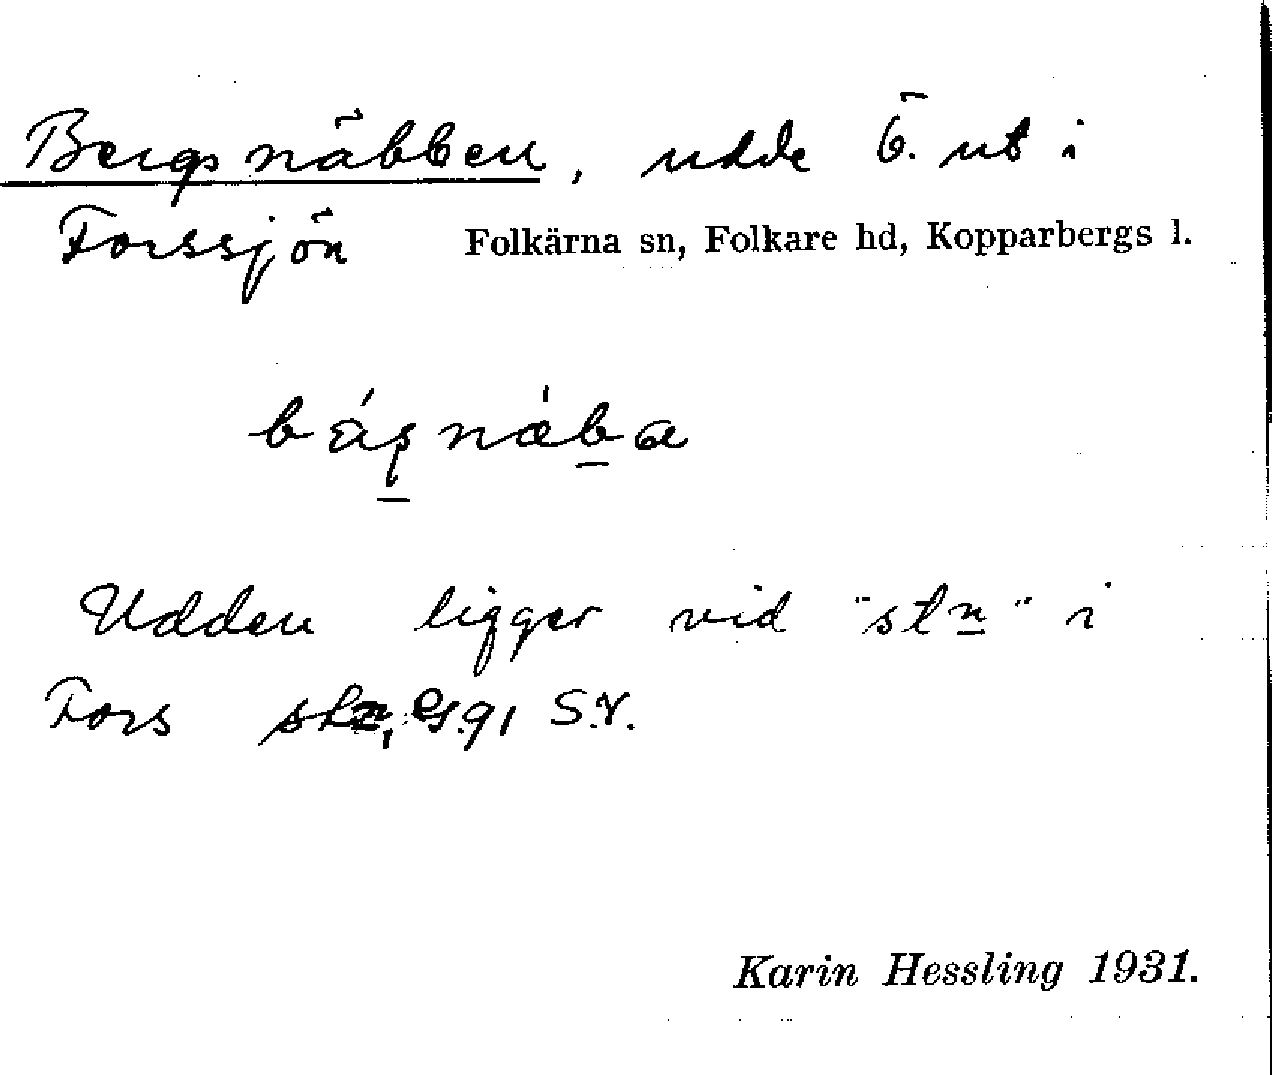 Bergsnäbben, udde Ö. ut i
Forssjön Folkärna sn, Folkare hd, Kopparbergs l.
Udden ligger vid "stn" i
Fors stn, S.V.
Karin Hessling 1931.